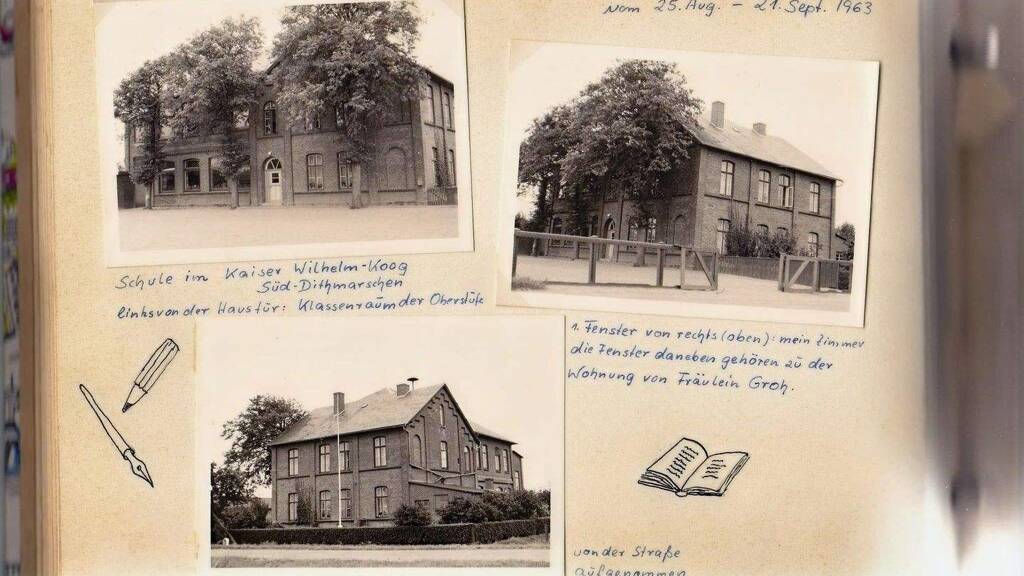 vom 25. Aug. – 21. Sept. 1963
Schule im Kaiser Wilhelm-Koog
Süd-Dithmarschen
links von der Haustür: Klassenraum der Oberstufe
1. Fenster von rechts (oben): mein Zimmer
die Fenster daneben gehören zu der
Wohnung von Fräulein Groh.
von der Straße
aufgenommen